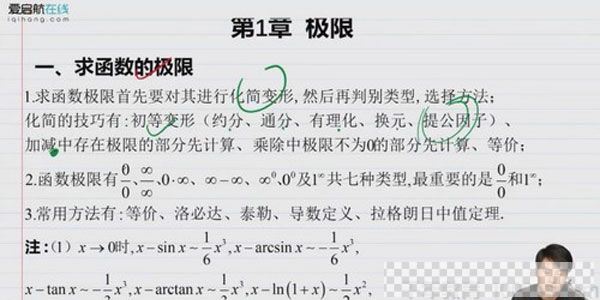 爱启航在线
iqihang.com
第1章 极限
一、求函数的极限
1.求函数极限首先要对其进行化简变形,然后再判别类型,选择方法;
化简的技巧有:初等变形（约分、通分、有理化、换元、提公因子）、
加减中存在极限的部分先计算、乘除中极限不为0的部分先计算、等价;
2.函数极限有0/0、∞/∞、0·∞、∞-∞、∞⁰、0⁰及1^∞共七种类型,最重要的是0/0和1^∞;
3.常用方法有:等价、洛必达、泰勒、导数定义、拉格朗日中值定理.
注:(1) x→0时, x-sin x ~ 1/6 x³, x-arcsin x ~ -1/6 x³,
x-tan x ~ -1/3 x³, x-arctan x ~ 1/3 x³, x-ln(1+x) ~ 1/2 x²,